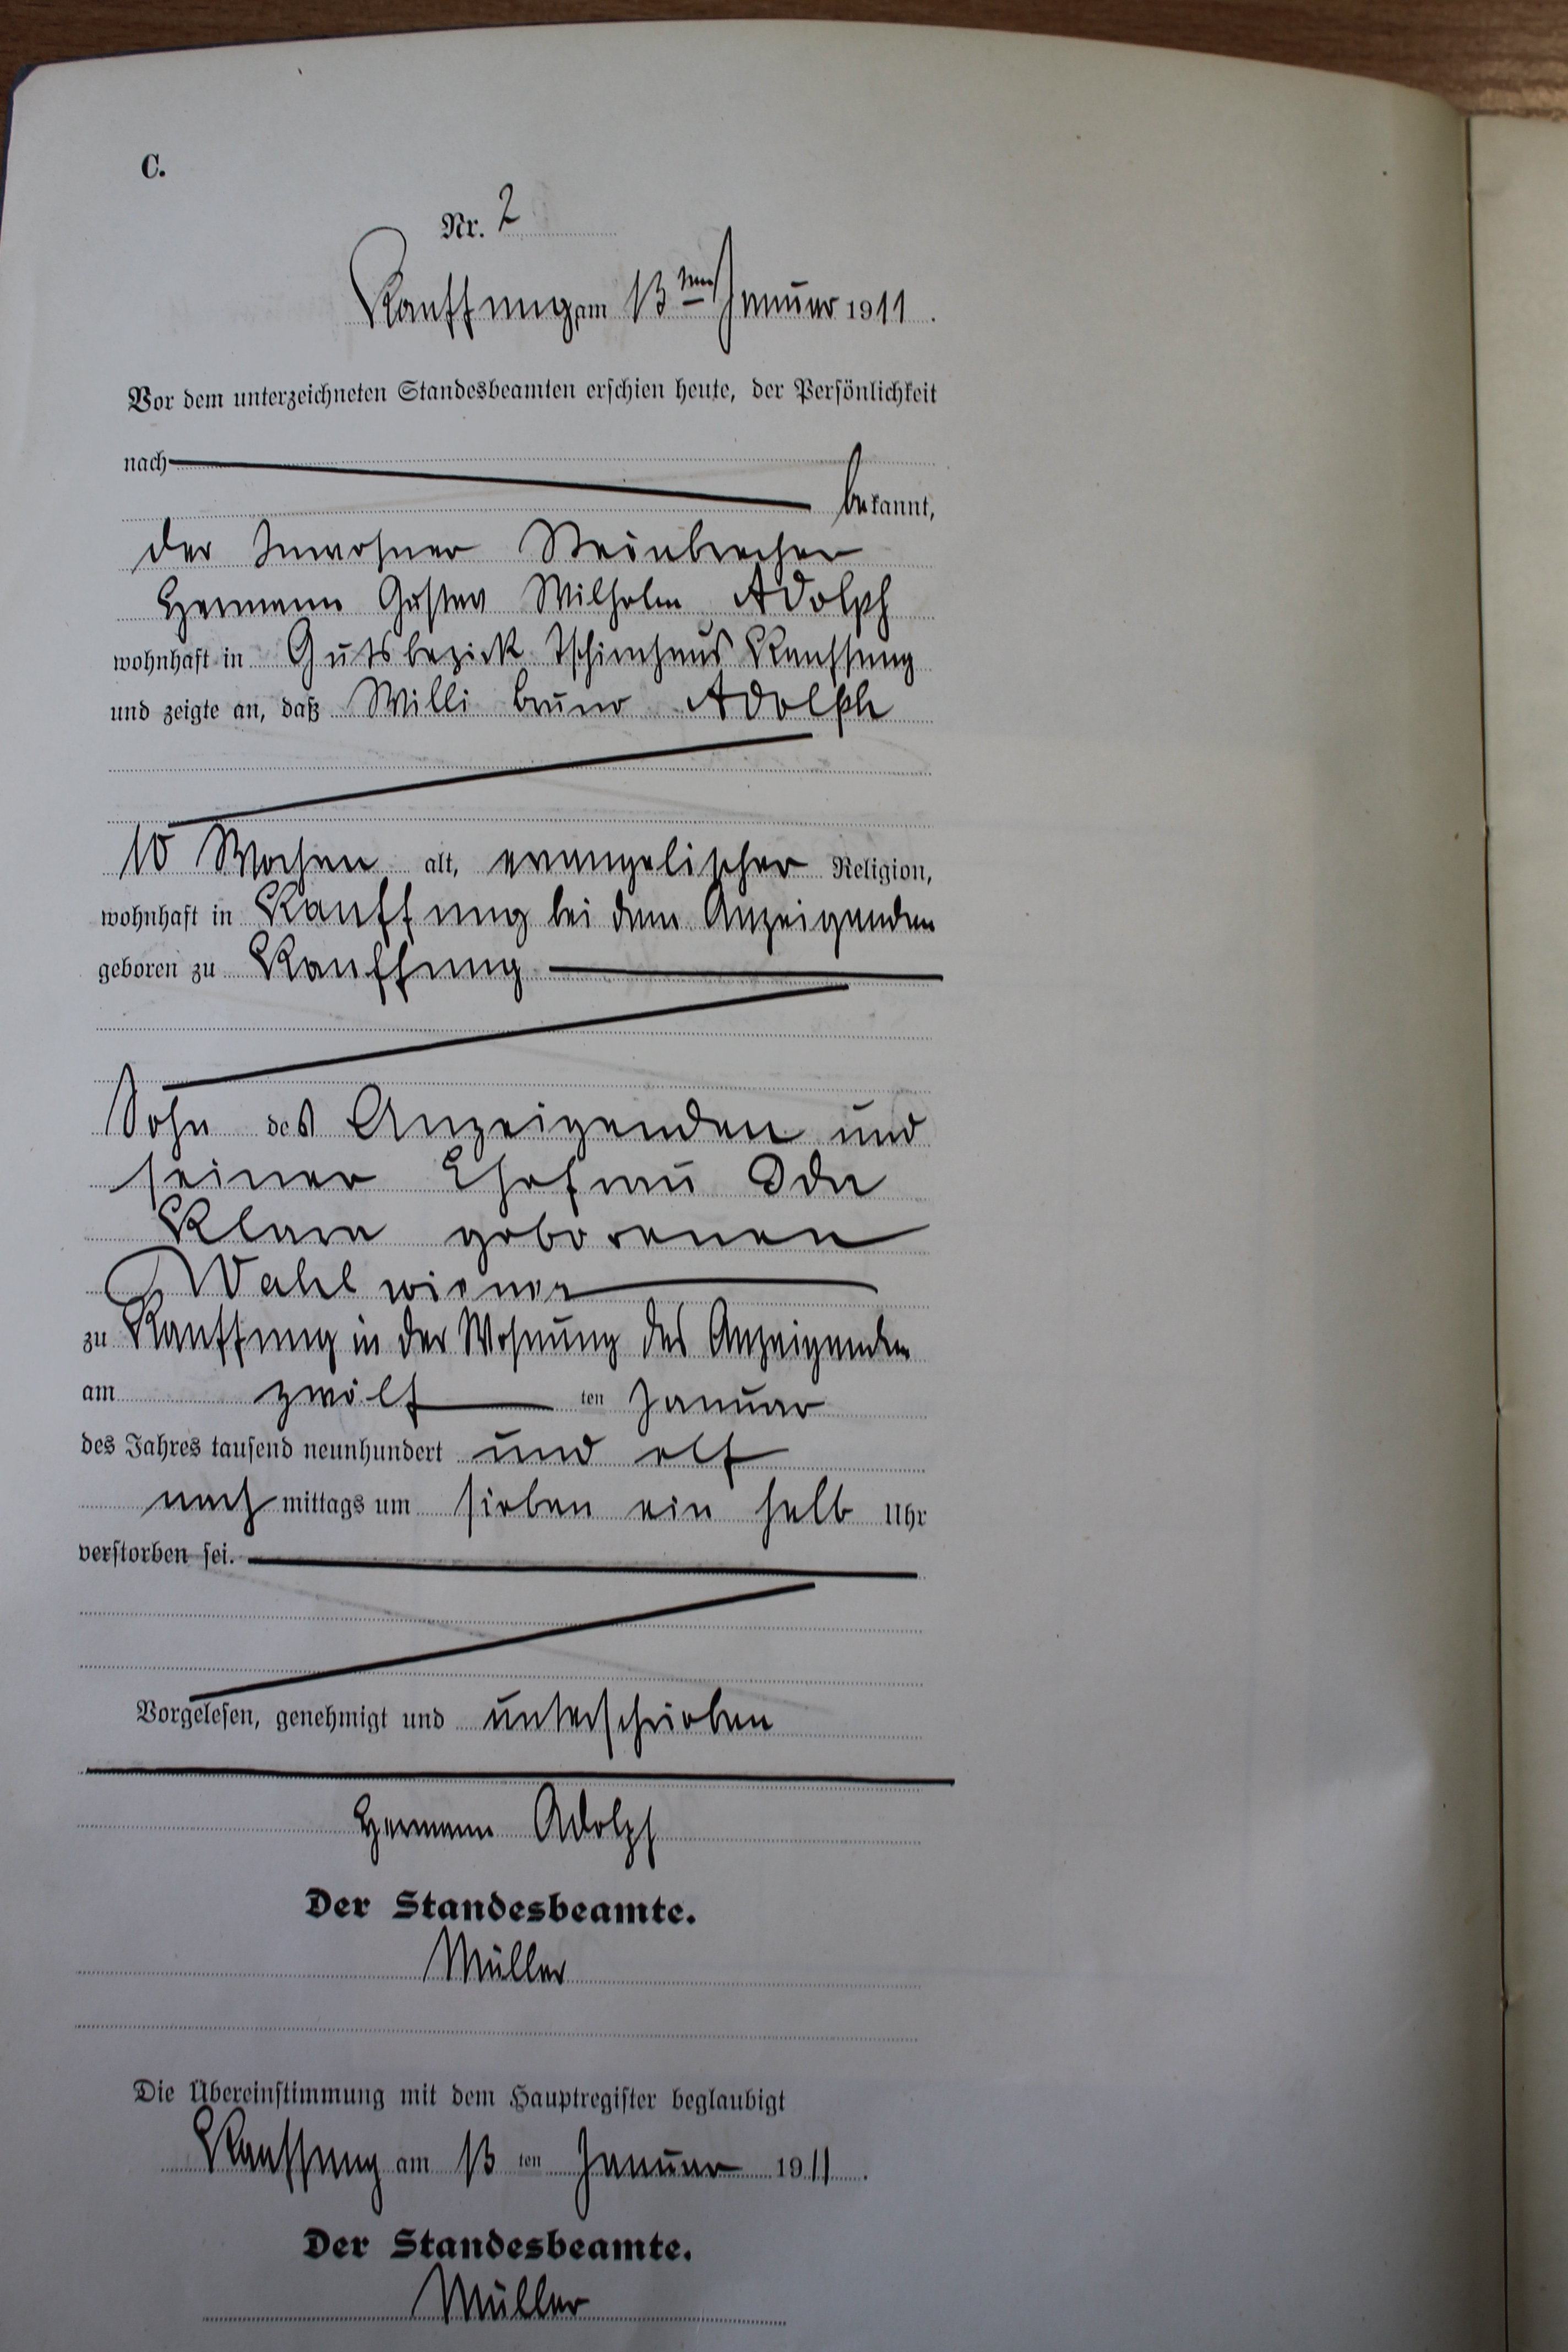 C.
Nr. 2
Kauffung am 13ten Januar 1911.
Vor dem unterzeichneten Standesbeamten erschien heute, der Persönlichkeit
nach
bekannt,
der Inwohner Steinbrecher
Hermann Gustav Wilhelm Adolph
wohnhaft in Gutsbezirk Tschirnhaus Kauffung
und zeigte an, daß Willi Bruno Adolph
10 Wochen alt, evangelischer Religion,
wohnhaft in Kauffung bei dem Anzeigenden
geboren zu Kauffung
Sohn des Anzeigenden und
seiner Ehefrau Ida
Klara geborenen
Wahlwiener
zu Kauffung in der Wohnung des Anzeigenden
am zwölf ten Januar
des Jahres tausend neunhundert und elf
nachmittags um sieben ein halb Uhr
verstorben sei.
Vorgelesen, genehmigt und unterschrieben
Hermann Adolph
Der Standesbeamte.
Müller
Die Übereinstimmung mit dem Hauptregister beglaubigt
Kauffung am 13 ten Januar 1911.
Der Standesbeamte.
Müller